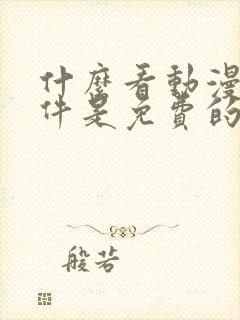 什麼看動漫
件是免費的
般若